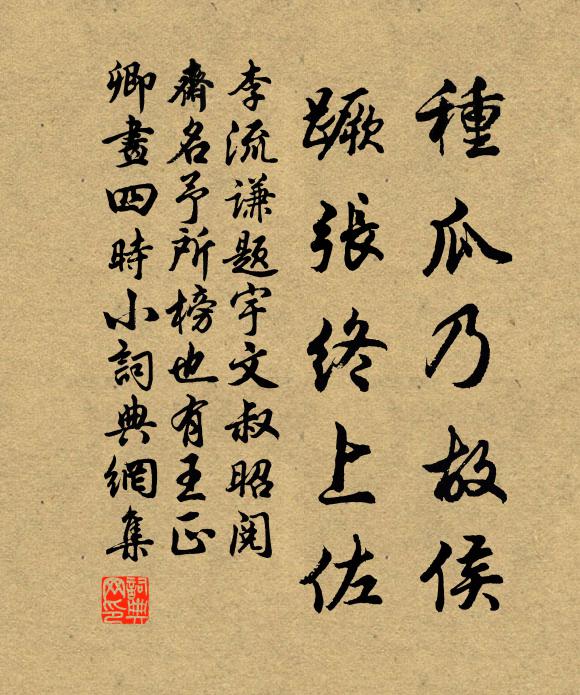 種瓜乃故侯
蹶張終上佐
李流謙题宇文叔昭阅
齋名予所榜也有王正
卿畫四時小詞典網集
詞典网印